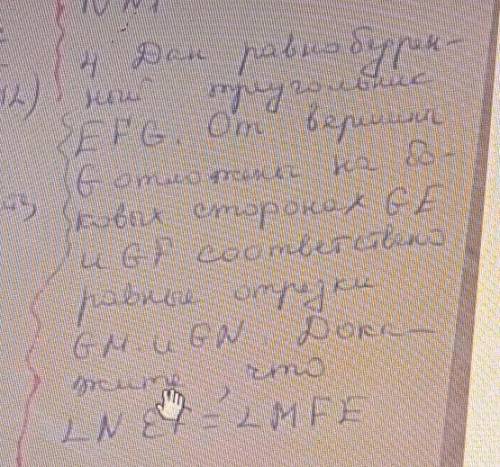 4 Дан равнобуррен-
12)
ный треугольник
EFG. От вершины
G отложены на бо-
ковых сторонах GE
и GF соответствено
равные отрезки
GM и GN. Дока-
жите, что
∠NEF = ∠MFE